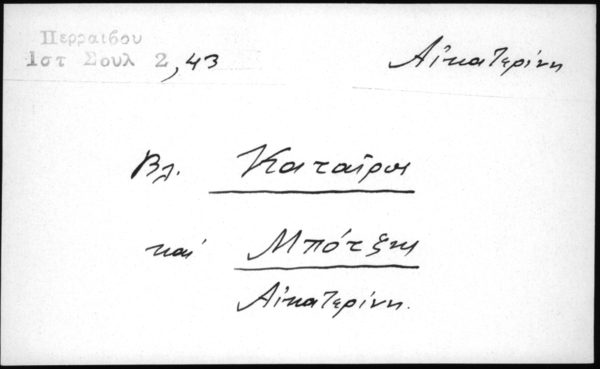 Περραιβου
Ιστ Σουλ 2,43
Αἰκατερίνη
Βλ. Καταῖροι
καί Μπότζης
Αἰκατερίνη.